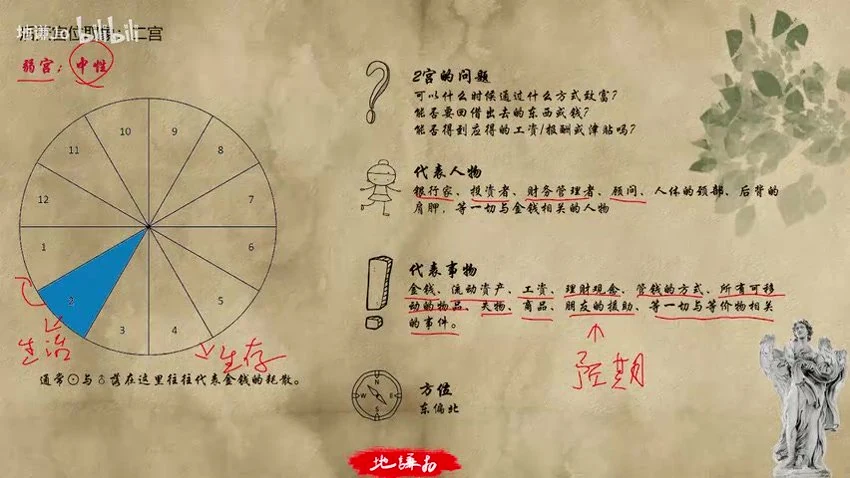 bilibili
二宫
弱宫：中性
10
9
11
8
12
7
1
6
2
5
3
4
生活
生存
通常☉与♂落在这里往往代表金钱的耗散。
2宫的问题
可以什么时候通过什么方式致富？
能否要回借出去的东西或钱？
能否得到应得的工资/报酬或津贴吗？
代表人物
银行家、投资者、财务管理者、顾问、人体的颈部、后背的
肩胛，等一切与金钱相关的人物
代表事物
金钱、流动资产、工资、理财观念、管钱的方式、所有可移
动的物品、失物、商品、朋友的援助、等一切与等价物相关
的事件。
预期
N
W
E
S
方位
东偏北
地谦为